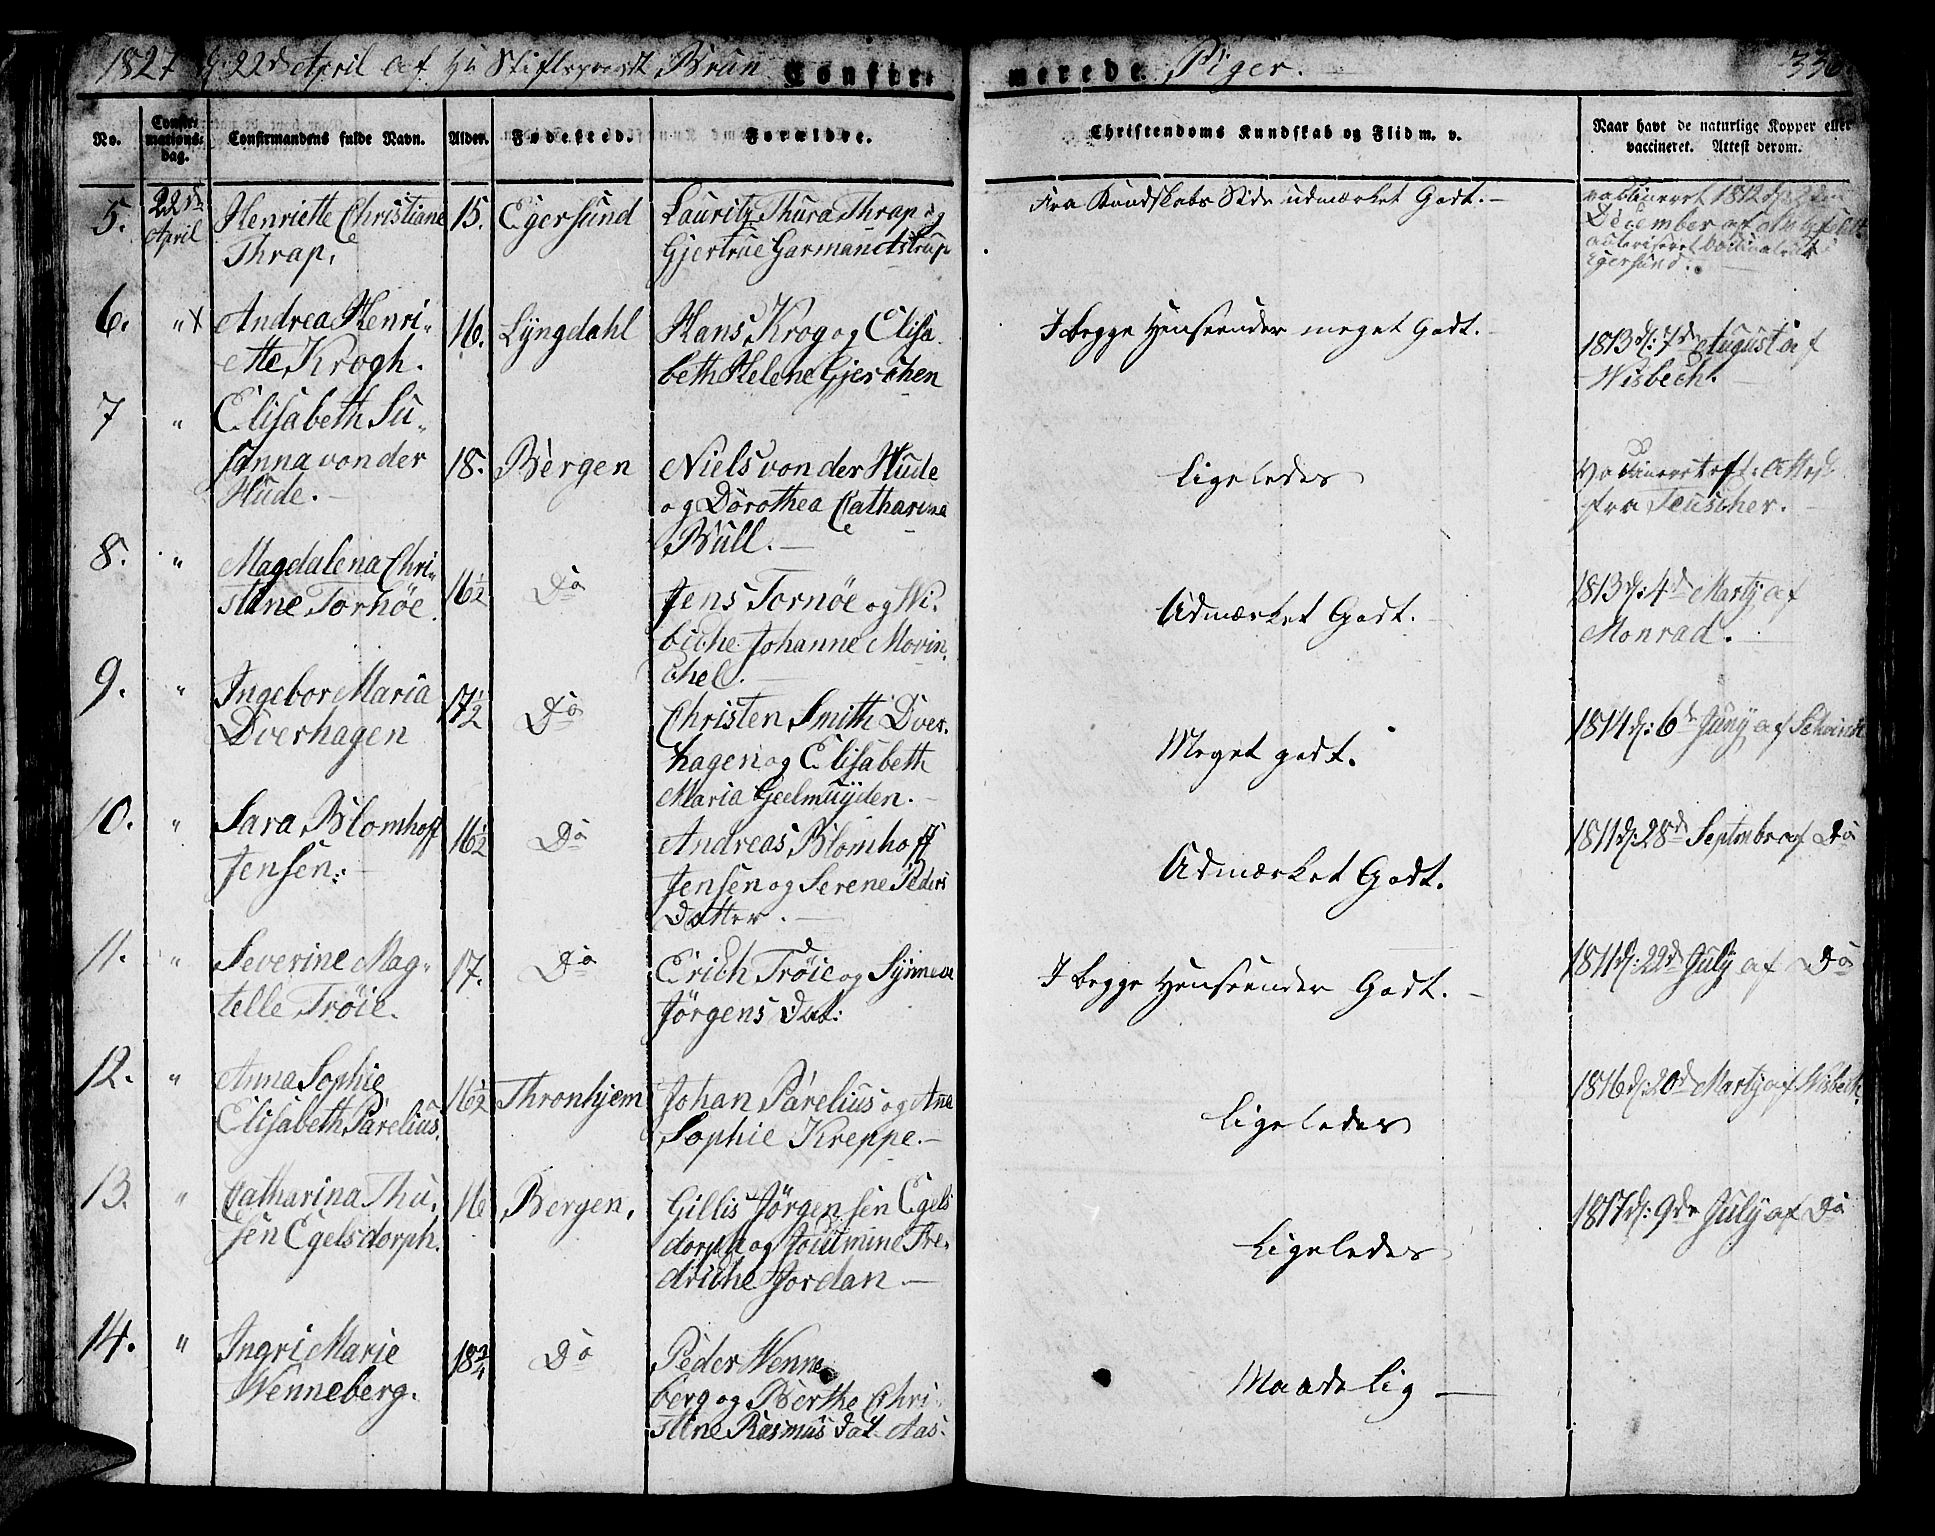 1827 d. 22d April af Hr Stiftsprovst Brun Confir- merede Piger. 336
No. Confirmations-dag. Confirmandens fulde Navn. Alder. Fødested. Forældre. Christendoms Kundskab og Flid m. v. Naar havt de naturlige Kopper eller vaccineret. Attest derom.
5. 22de April Henriette Christiane Thrap. 15. Egersund Lauritz Thura Thrap og Gjertrue Garmanctstrup Fra Kundskabs Side udmærket Godt.- vaccineret 1812 d: 2den December af autoriseret Egersund.
6. " X Andrea Henri- ette Krogh. 16. Lÿngdahl Hans Krog og Elisa- beth Helene Gjerchen I begge Henseender meget Godt.- 1813 d: 7d August af Wisbech.
7 " Elisabeth Su- sanna von der Hude.- 18. Bergen Niels von der Hude og Dorothea Catharina Bull.- Ligeledes Vaccineret eft: Attest fra Teuscher.-
8. " Magdalena Chri- stine Tornöe. 16½ Do Jens Tornöe og Wi- biche Johanne Movin- chel.- Udmærket Godt.- 1813 d: 4d Martÿ af Monrad.-
9. " Ingebor Maria Dverhagen 17½ Do Christen Smith Dver- hagen og Elisabeth Maria Geelmuÿden.- Meget godt. 1814 d: 6d Junÿ af
10. " Sara Blomhoff Jensen:- 16½ Do Andreas Blomhoff Jensen og Serene Peders Datter.- Udmærket Godt. 1811 d: 28d Septmbr af Do
11. " Severine Mag- telle Tröie. 17. Do Erich Tröie og Synneve Jörgens Dat: I begge Henseender Godt.- 1811 d: 22d Julÿ af Do
12. " Anna Sophie Elisabeth Parelius. 16½ Thronhjem Johan Parelius og Ana Sophie Kreppe.- Ligeledes 1816 d: 20d Martÿ af Wisbech.
13. " Catharina Thu- sen Egelsdorph. 16 Bergen. Gillis Jörgensen Egels dorph og Joutmine Fre- driche Jordan - Ligeledes 1817 d: 9de Julÿ af Do
14. " Ingri Marie Wenneberg. 18¾ Do Peder Wenne berg og Berthe Chri- stine Rasmus dat Aas. Maadelig -